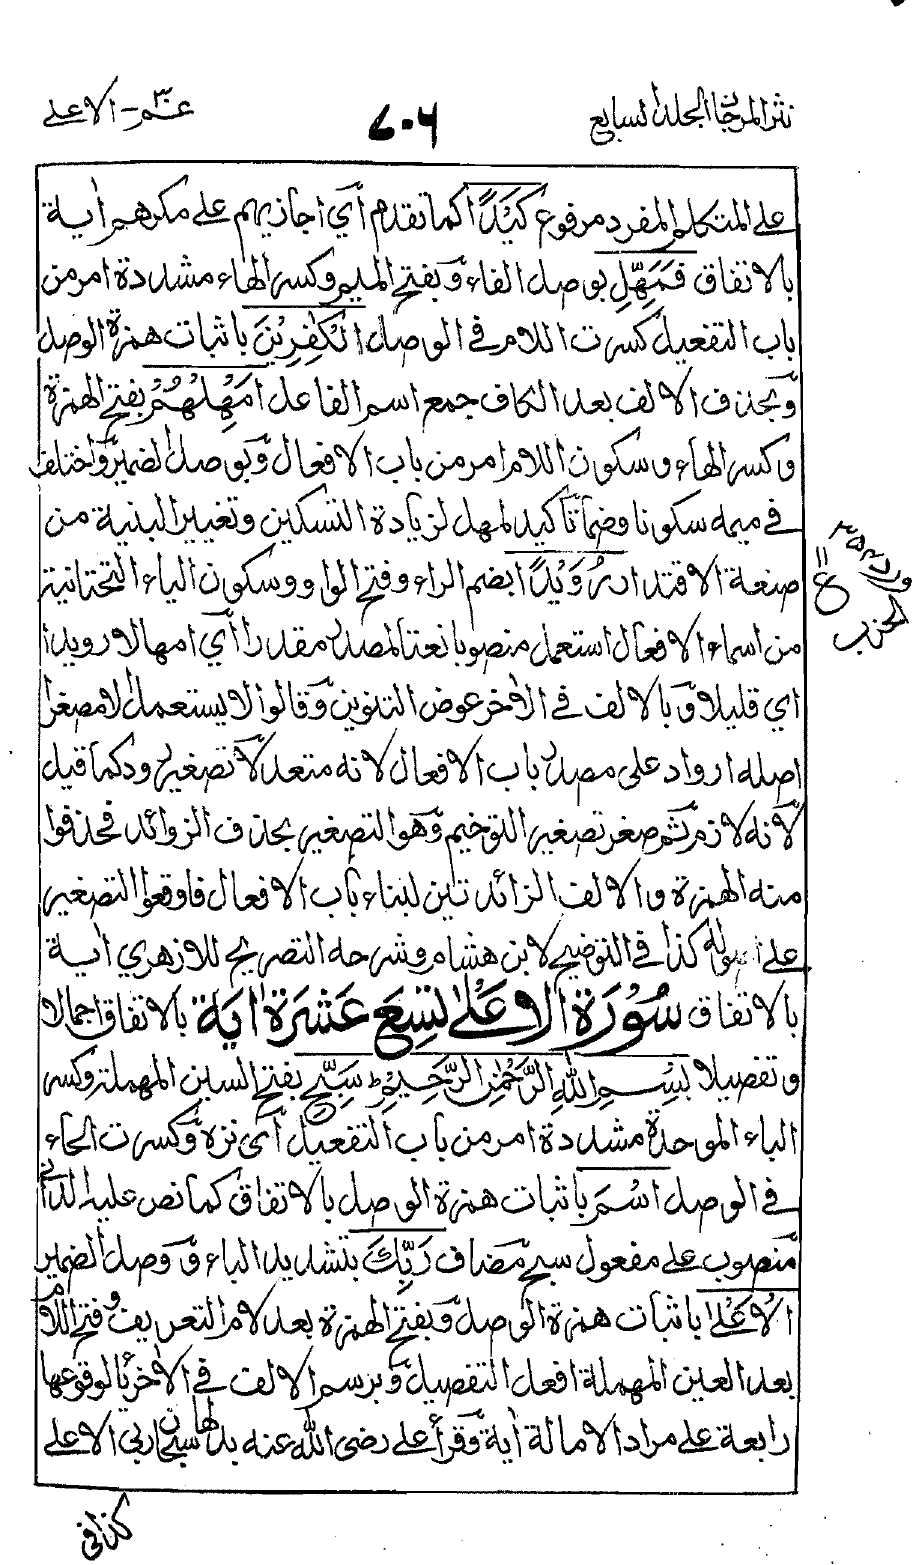 نثر المرجان الجلد السابع
٧٠٦
عمّ٣٠ - الاعلى
على المتكلم المفرد مرفوع كَيْدًا كما تقدم اَي اجازيهم على مكرهم اٰية
بالاتفاق فَمَهِّلِ بوصل الفاء وَبفتح الميم وكسر الهاء مشددة امر من
باب التفعيل كسرت اللام فى الوصل الْكٰفِرِيْنَ باثبات همزة الوصل
وَبحذف الالف بعد الكاف جمع اسم الفاعل اَمْهِلْهُمْ بفتح الهمزة
وكسر الهاء وسكون اللام امر من باب الافعال وَبوصل الضمير وَاختلف
فى ميمه سكونا وضما تَاكيد لمهل لزيادة التسكين وتغيير البنية من
صنعة الاقتدار رُوَيْدًا بضم الراء وفتح الواو وسكون الياء التحتانية
من اسماء الافعال استعمل منصوبا نعتا لمصدر مقدر اَي امهالا رويدا
اي قليلا وَبالالف فى الاٰخر عوض التنوين وَقالوا لا يستعمل الا مصغرا
اصله ارواد على مصدر باب الافعال لانه متعد لَا تصغير رود كما قيل
لَانه لازم ثَم صغر تصغير الترخيم وَهو التصغير بحذف الزوائد فحذفوا
منه الهمزة والالف الزائدتين لبناء باب الافعال فاوقعوا التصغير
على اصوله كذا فى التوضيح لابن هشام وشرحه التصريح للازهري اٰية
بالاتفاق سُوْرَةُ الاَعْلٰى تِسْعَ عَشَرَةَ اٰيَةً بالاتفاق اجمالا
وتفصيلا بِسْمِ اللهِ الرَّحْمٰنِ الرَّحِيْمِ سَبِّحِ بفتح السين المهملة وكسر
الباء الموحدة مشددة امر من باب التفعيل اَى نزه وَكسرت الحاء
فى الوصل اسْمَ باثبات همزة الوصل بالاتفاق كما نص عليه الدانى
مَنصوب على مفعول سبح مَضاف رَبِّكَ بتشديد الباء وَوصل الضمير
الْاَعْلَى باثبات همزة الوصل وَبفتح الهمزة بعد لام التعريف وَفتح اللام
بعد العين المهملة افعل التفضيل وَبرسم الالف فى الاٰخر يَاء لوقوعها
رابعة على مراد الامالة اٰية وَقرأ على رضى الله عنه بدلها سبحان ربى الاعلى
كذا فى